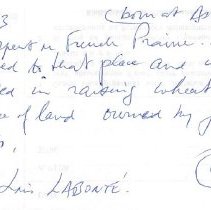 3 (born at As
spent in French Prairie.
ed to that place and
ed in raising wheat
e of land owned by J
Luis LABONTÉ.